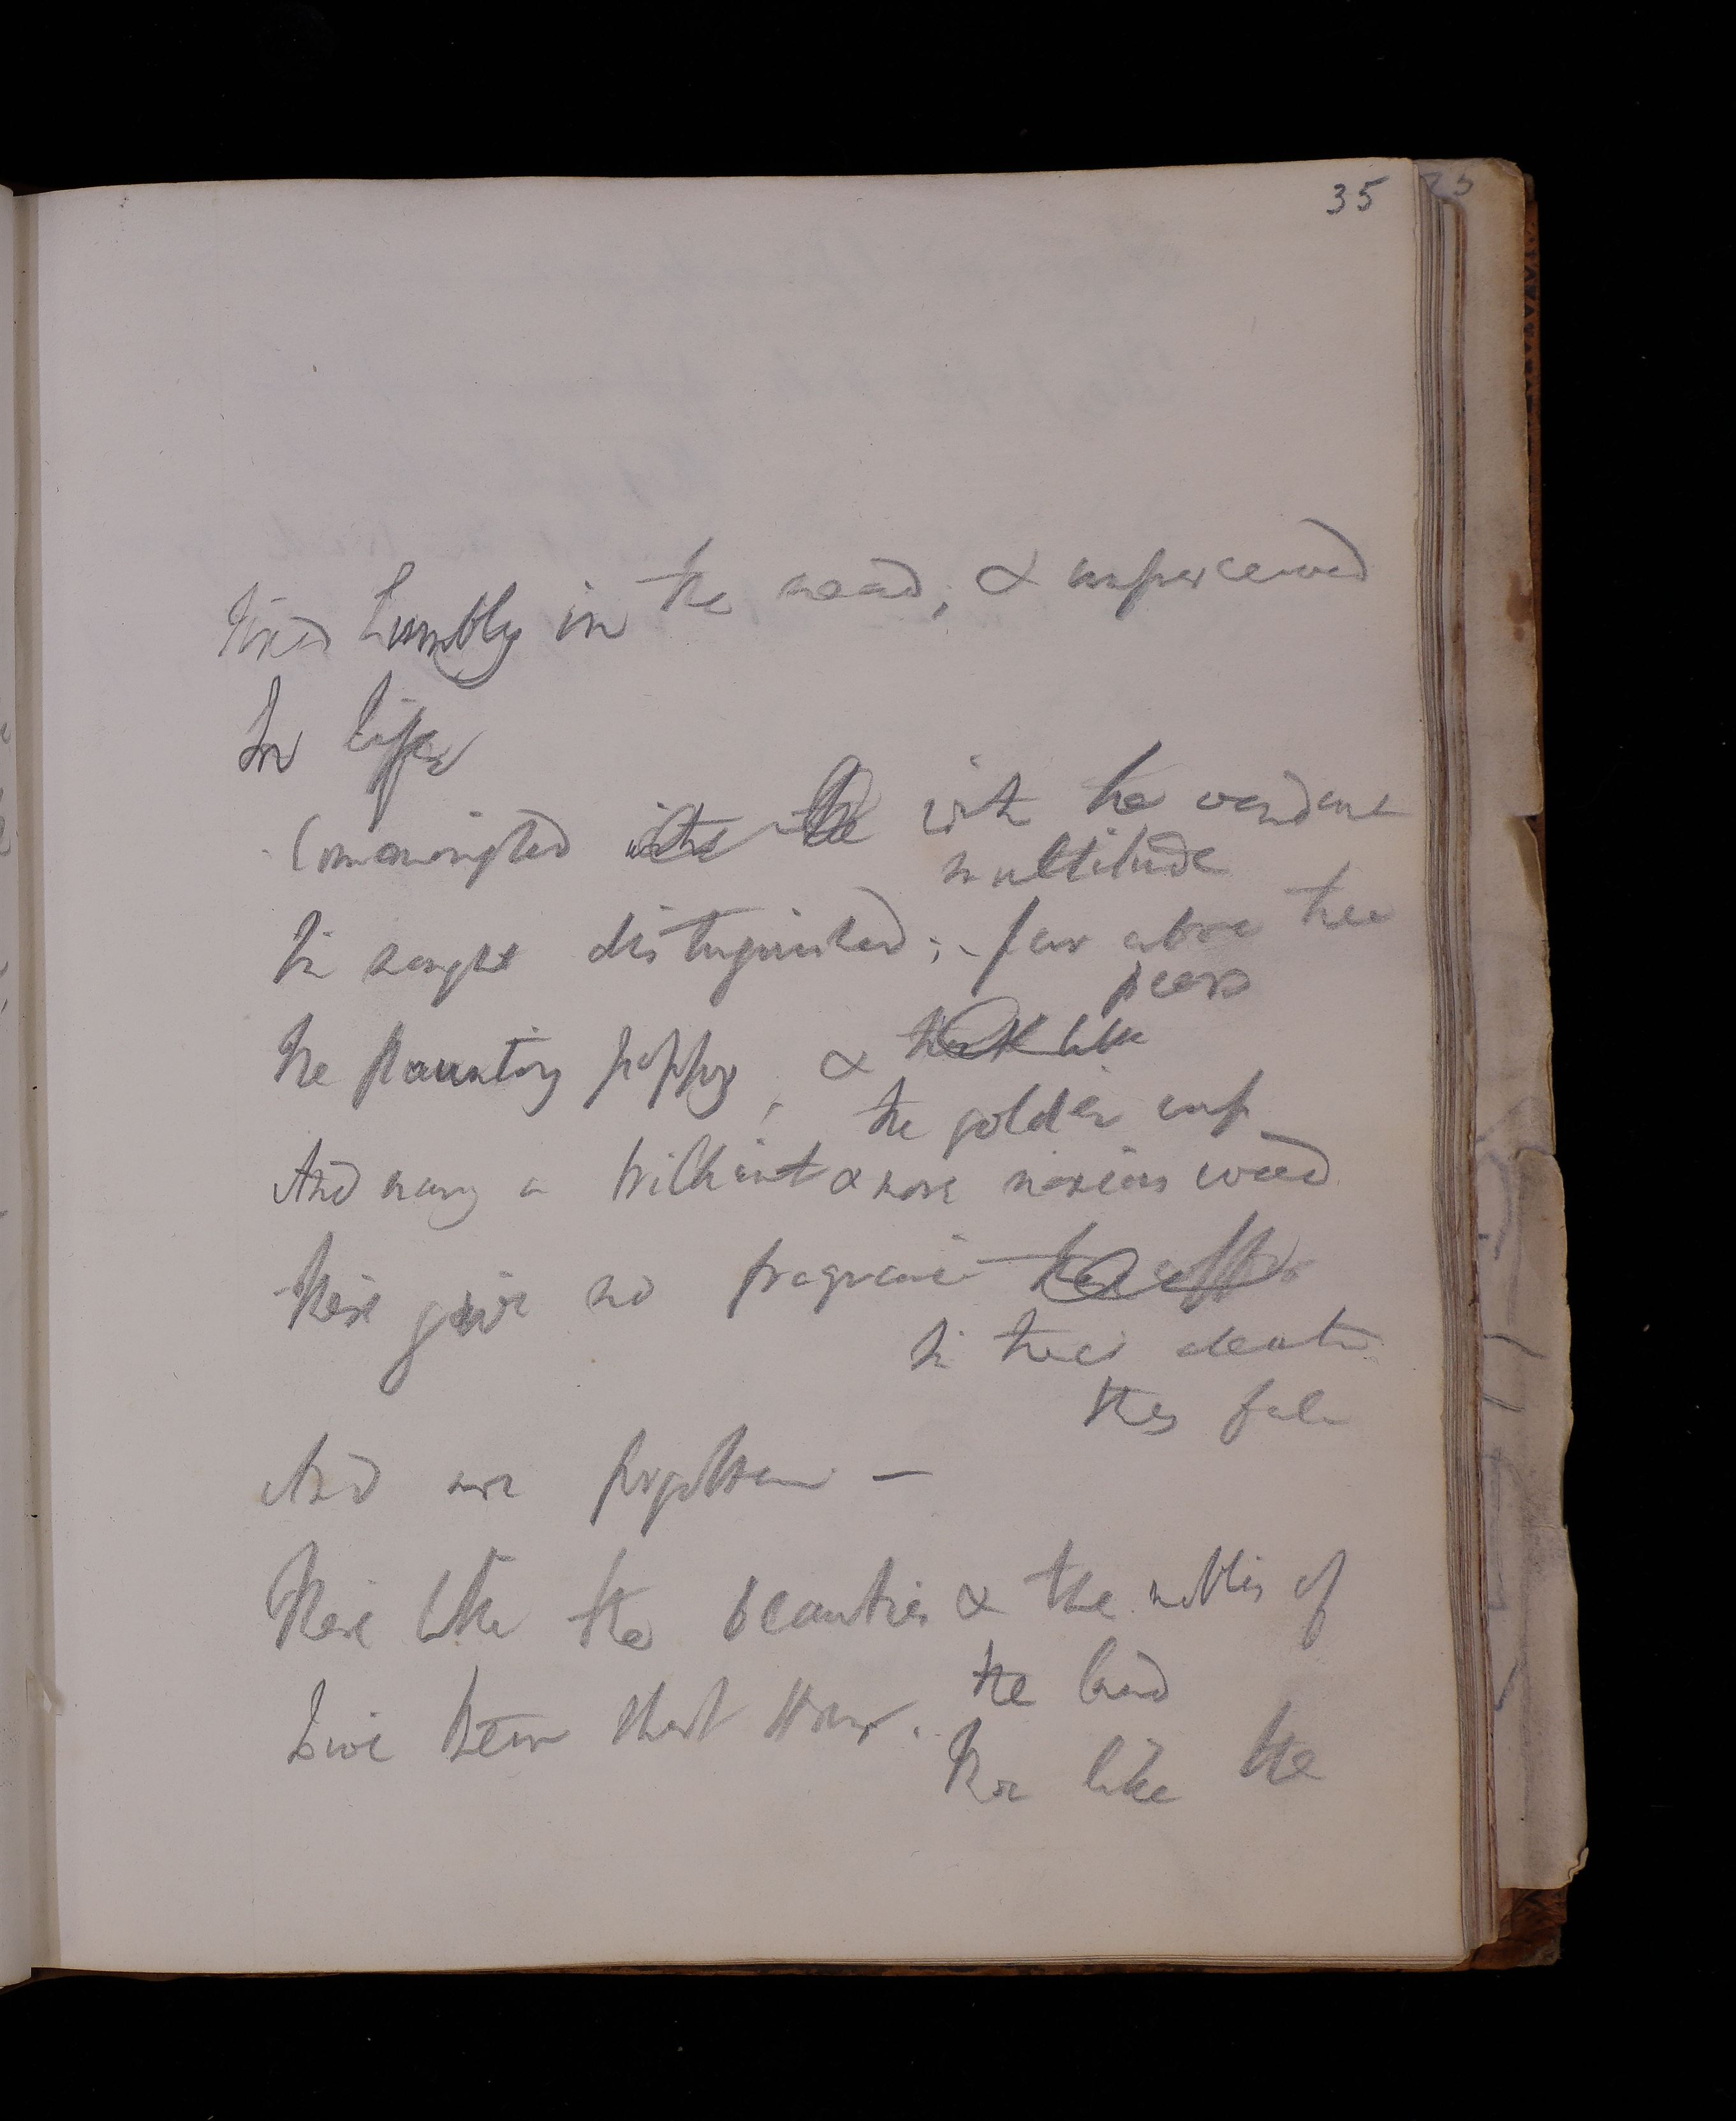 35
Lived humbly in the mead, & unperceived
In life
Commingled <del>with the</del> with the verdant
multitude
In nought distinguished; - far above thee
peers
The flaunting poppy, & <del>that like</del>
the golden cup
And many a brilliant & more noxious weed
These give no fragrance <del>they offer</del>
in their death
they fall
And are forgotten —
These like the beauties & the nobles of
the land
Live their short hour.
Thou like the